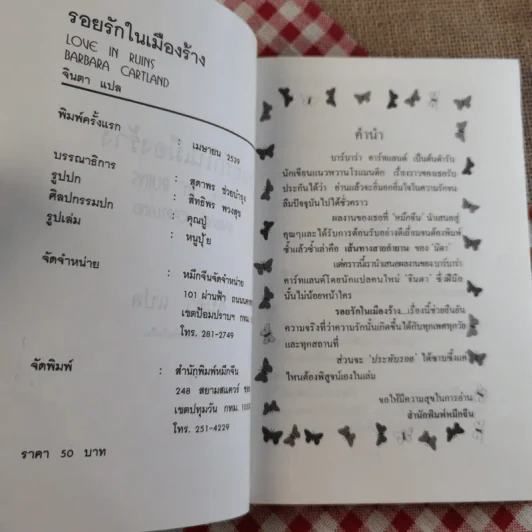 รอยรักในเมืองร้าง
LOVE IN RUINS
BARBARA CARTLAND
จินตา แปล
พิมพ์ครั้งแรก
: เมษายน 2539
บรรณาธิการ
: สุดาพร ช่วยบำรุง
รูปปก
: สิทธิพร พวงสุข
ศิลปกรรมปก
: คุณปู่
รูปเล่ม
: หนูปุ้ย
จัดจำหน่าย
: หมึกจีนจัดจำหน่าย
101 ผ่านฟ้า
เขตป้อมปราบฯ กทม.
โทร. 281-2749
จัดพิมพ์
: สำนักพิมพ์หมึกจีน
248 สยามสแควร์
เขตปทุมวัน กทม.
โทร. 251-4229
ราคา 50 บาท
คำนำ
บาร์บาร่า คาร์ทแลนด์ เป็นต้นตำรับ
นักเขียนแนวหวานโรแมนติก เรื่องราวของเธอรับ
ประกันได้ว่า อ่านแล้วจะอิ่มอกอิ่มใจในความรักจน
ลืมปัจจุบันไปได้ชั่วคราว
ผลงานของเธอที่ 'หมึกจีน' นำเสนอสู่
คุณๆและได้รับการต้อนรับอย่างดีเยี่ยมจนต้องพิมพ์
ซ้ำแล้วซ้ำเล่าคือ เส้นทางสายลำยาน ของ 'นิดา'
แต่คราวนี้เรานำเสนอผลงานของ บาร์บาร่า
คาร์ทแลนด์โดยนักแปลคนใหม่ 'จินตา' ซึ่งฝีมือ
นั้นไม่น้อยหน้าใคร
รอยรักในเมืองร้าง...เรื่องนี้ช่วยยืนยัน
ความจริงที่ว่าความรักนั้นเกิดขึ้นได้กับทุกเพศทุกวัย
และทุกสถานที่
ส่วนจะ 'ประทับรอย' ได้ซาบซึ้งแค่
ไหนต้องพิสูจน์เองในเล่ม
ขอให้มีความสุขในการอ่าน
สำนักพิมพ์หมึกจีน